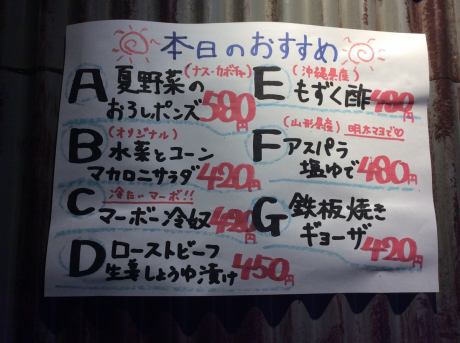 本日のおすすめ
A 夏野菜の(ナス・カボチャ)
おろしポンズ 580円
B (オリジナル)
水菜とコーン
マカロニサラダ 420円
C 冷たいマーボ!!
マーボー冷奴 420円
D ローストビーフ
生姜しょうゆ漬け 450円
E (沖縄県産)
もずく酢 480円
F (山形県産) 明太マヨで♡
アスパラ
塩ゆで 480円
G 鉄板焼き
ギョーザ 420円